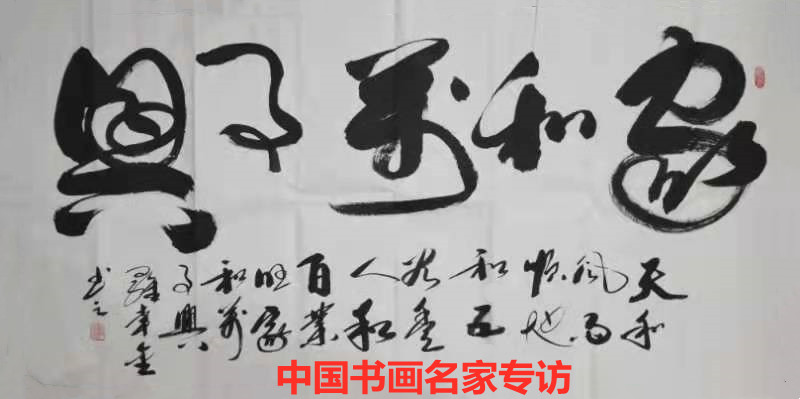 家和萬事興
天和
风雨
顺地
和五
谷豐
人和
百業
旺家
和萬
事興
书之
中国书画名家专访